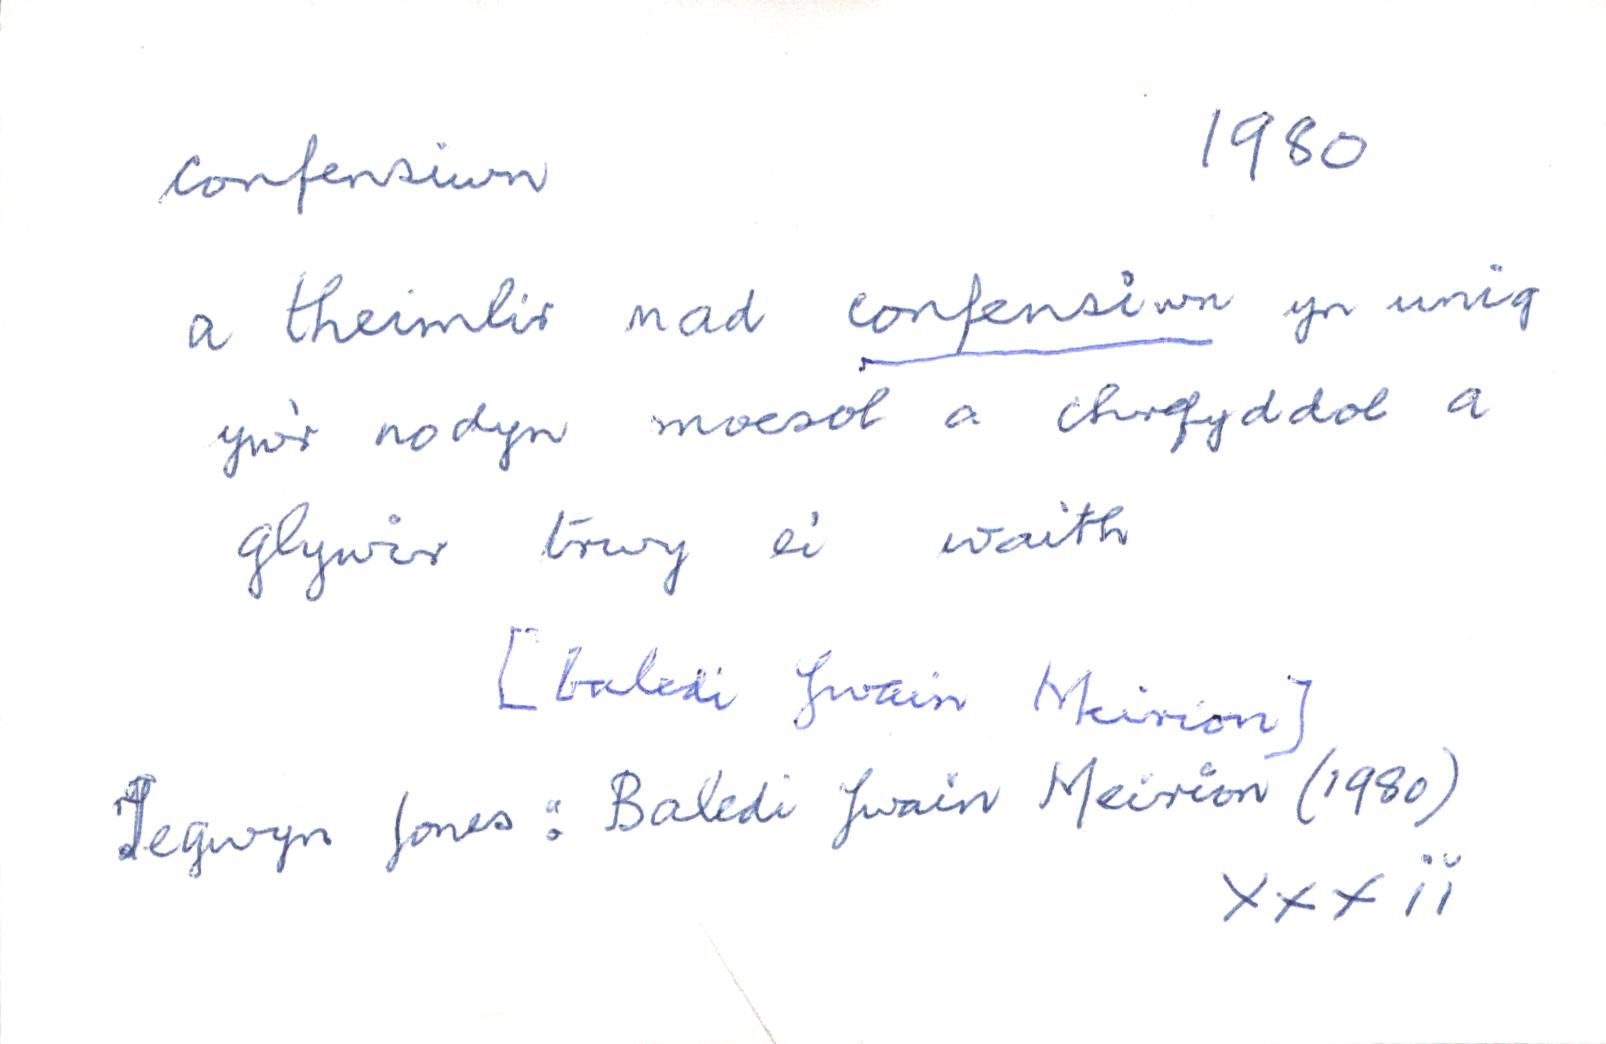 confensiwn 1980
a theimlir nad confensiwn yn unig
yw'r nodyn moesol a chrefyddol a
glywir trwy ei waith
[baledi Ywain Meirion]
Tegwyn Jones: Baledi Ywain Meirion (1980)
xxxii